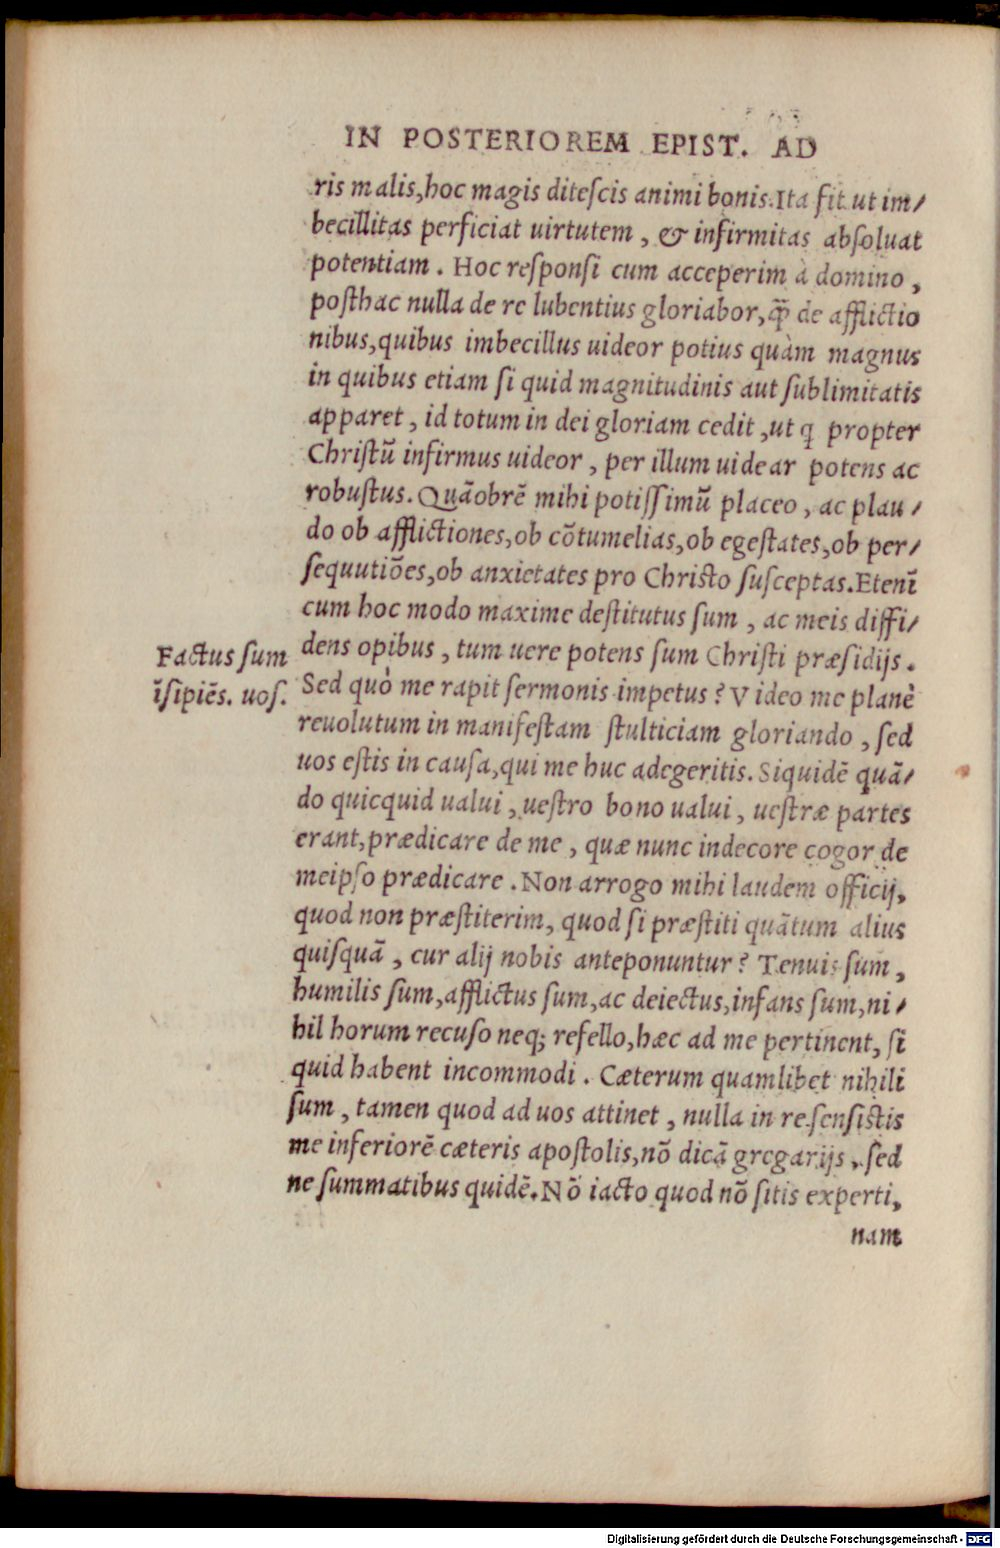 IN POSTERIOREM EPIST. AD
ris malis, hoc magis ditescis animi bonis. Ita fit ut im/
becillitas perficiat uirtutem, & infirmitas absoluat
potentiam. Hoc responsi cum acceperim à domino,
posthac nulla de re lubentius gloriabor, q̃ de afflictio
nibus, quibus imbecillus uideor potius quàm magnus
in quibus etiam si quid magnitudinis aut sublimitatis
apparet, id totum in dei gloriam cedit, ut q propter
Christũ infirmus uideor, per illum uidear potens ac
robustus. Quãobrẽ mihi potissimũ placeo, ac plau/
do ob afflictiones, ob cõtumelias, ob egestates, ob per/
sequutiões, ob anxietates pro Christo susceptas. Etenĩ
cum hoc modo maxime destitutus sum, ac meis diffi/
dens opibus, tum uere potens sum Christi præsidijs.
Factus sum
ĩsipiẽs. uos.
Sed quò me rapit sermonis impetus? Video me planè
reuolutum in manifestam stulticiam gloriando, sed
uos estis in causa, qui me huc adegeritis. Siquidẽ quã/
do quicquid ualui, uestro bono ualui, uestræ partes
erant, prædicare de me, quæ nunc indecore cogor de
meipso prædicare. Non arrogo mihi laudem officij,
quod non præstiterim, quod si præstiti quãtum alius
quisquã, cur alij nobis anteponuntur? Tenuis sum,
humilis sum, afflictus sum, ac deiectus, infans sum, ni/
hil horum recuso neq; refello, hæc ad me pertinent, si
quid habent incommodi. Cæterum quamlibet nihili
sum, tamen quod ad uos attinet, nulla in re sensistis
me inferiorẽ cæteris apostolis, nõ dicã gregarijs, sed
ne summatibus quidẽ. Nõ iacto quod nõ sitis experti,
nam
Digitalisierung gefördert durch die Deutsche Forschungsgemeinschaft - DFG